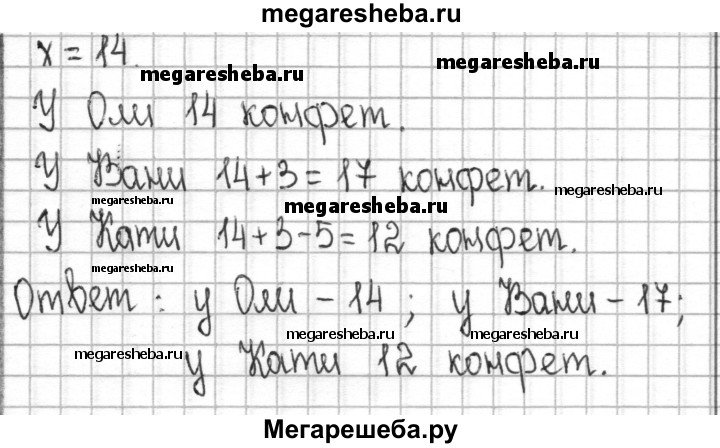 megaresheba.ru
x = 14.
megaresheba.ru
У Оли 14 конфет.
megaresheba.ru
У Вани 14+3=17 конфет.
megaresheba.ru
megaresheba.ru
megaresheba.ru
У Кати 14+3-5=12 конфет.
megaresheba.ru
Ответ: у Оли - 14; у Вани - 17;
megaresheba.ru
megaresheba.ru
megaresheba.ru
у Кати 12 конфет.
Мегарешеба.ру